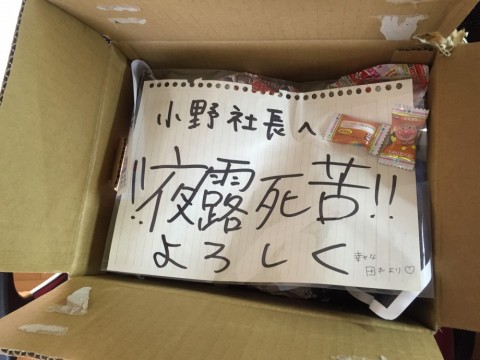 小野社長へ
!!夜露死苦!!
よろしく
幸せな
田わより♡